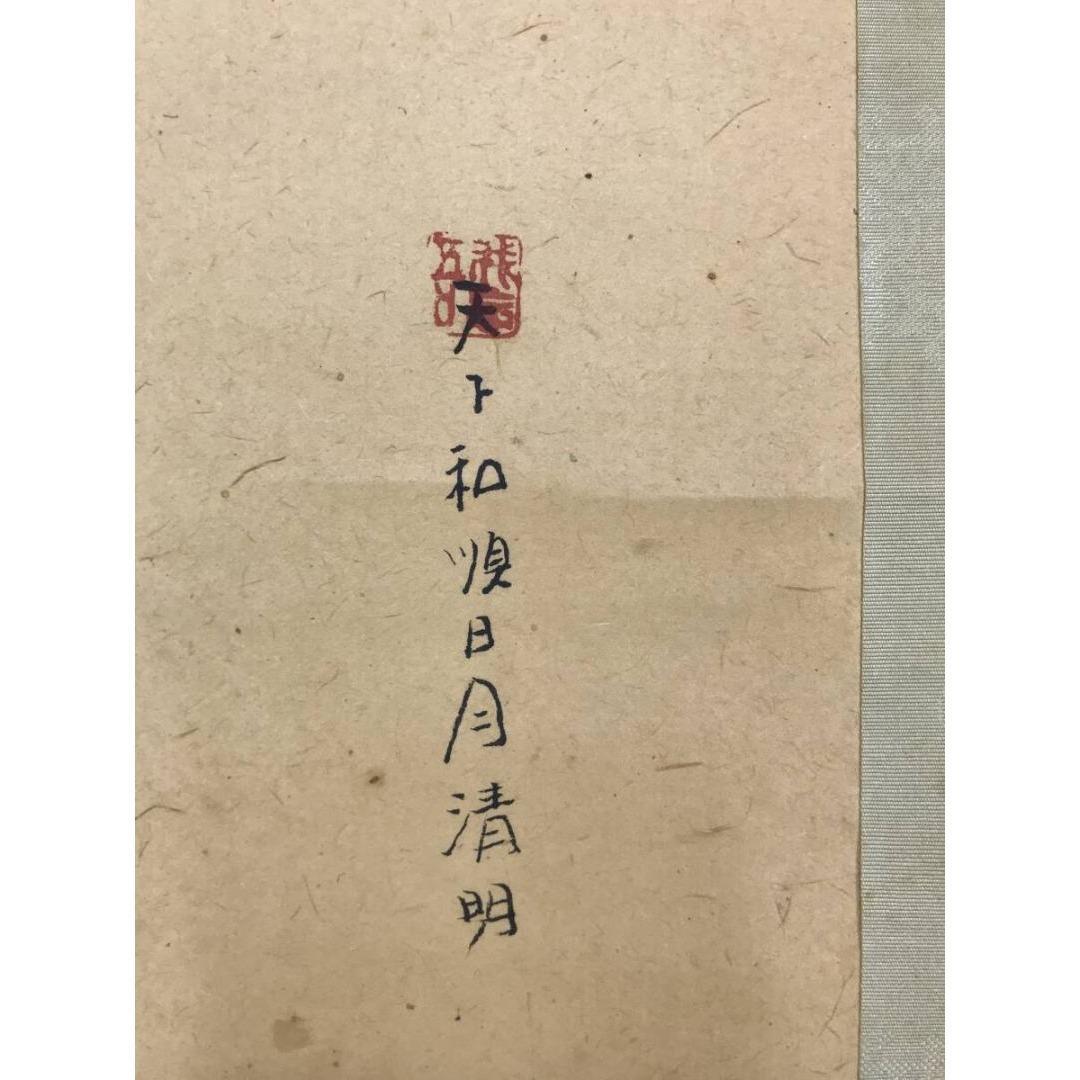 天下和順日月清明